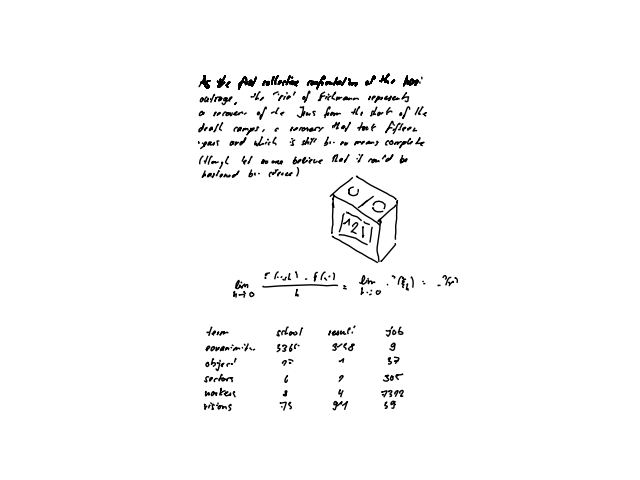 As the first collective confrontation of the Nazi
outrage, the "trial" of Eichmann represents
a recovery of the Jews from the shock of the
death camps, a recovery that took fifteen
years and which is still by no means complete
(though let no one believe that it could be
hastened by silence)
125
lim h→0 f(x+h) - f(x) / h = lim h→0
term school result job
equanimity 9
object 37
sectors 6 305
workers 8 4 7392
visions 75 94 59